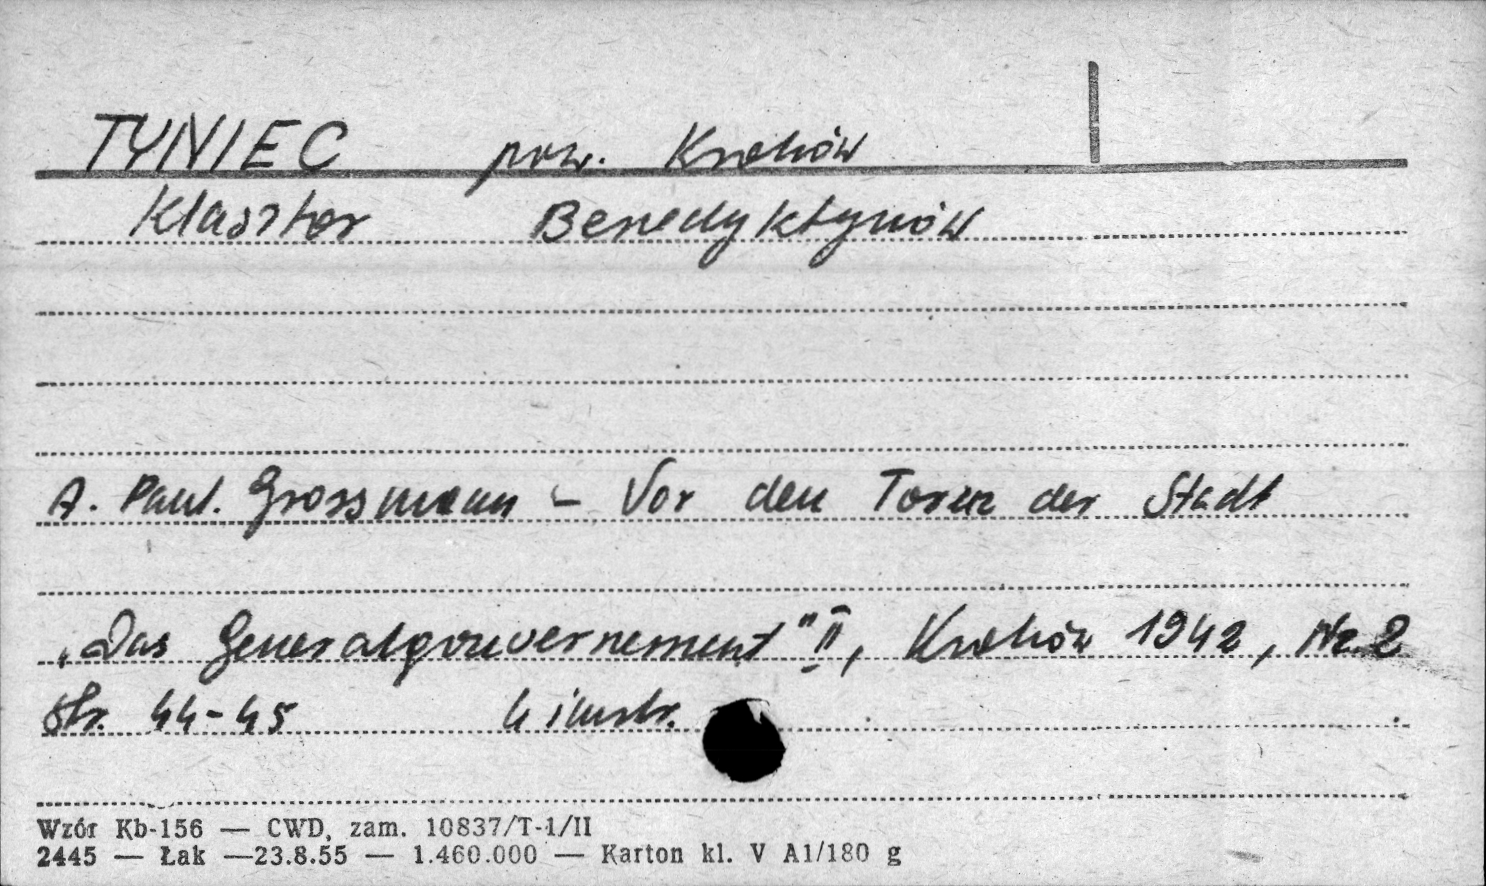 TYNIEC pow. Kraków
Klasztor Benedyktynów
A. Paul. Grossmann - Vor den Toren der Stadt
„Das Generalgouvernement" II, Kraków 1942, Nr. 2
Str. 44-45 4 ilustr.
Wzór Kb-156 — CWD, zam. 10837/T-1/II
2445 — Łak —23.8.55 — 1.460.000 — Karton kl. V A1/180 g